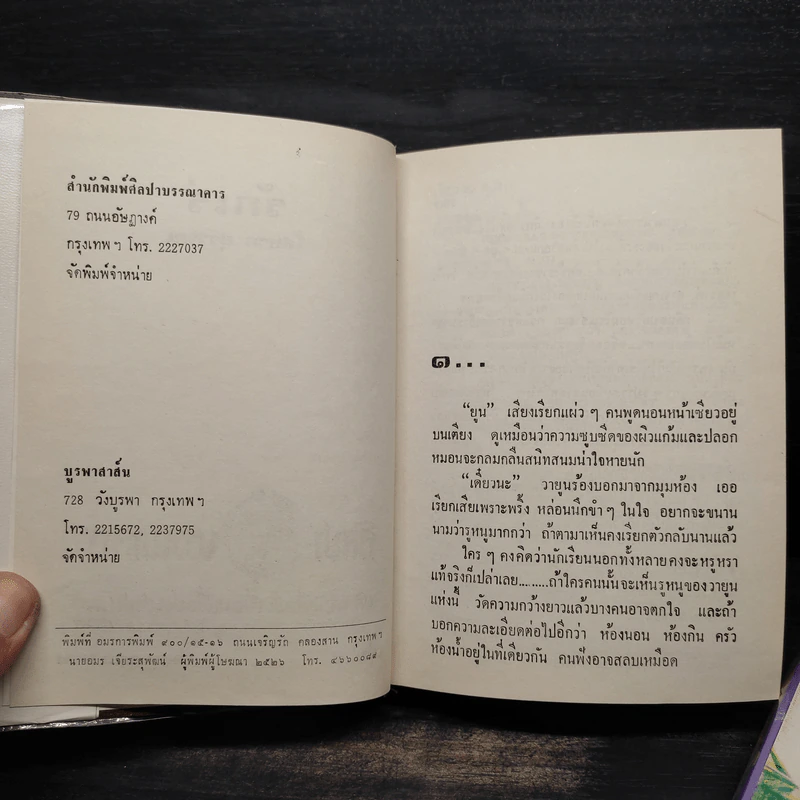 สำนักพิมพ์ศิลปาบรรณาคาร
79 ถนนอัษฎางค์
กรุงเทพ ฯ โทร. 2227037
จัดพิมพ์จำหน่าย
บูรพาสาส์น
728 วังบูรพา กรุงเทพ ฯ
โทร. 2215672, 2237975
จัดจำหน่าย
พิมพ์ที่ อมรการพิมพ์ ๙๐๐/๑๕-๑๖ ถนนเจริญรัถ คลองสาน กรุงเทพ ฯ
นายอมร เจียระสุพัฒน์ ผู้พิมพ์ผู้โฆษณา ๒๕๒๖ โทร. ๔๖๖๐๐๘๙
๑...
“ยูน” เสียงเรียกแผ่ว ๆ คนพูดนอนหน้าเซียวอยู่
บนเตียง ดูเหมือนว่าความซูบซีดของผิวแก้มและปลอก
หมอนจะกลมกลืนสนิทสนมน่าใจหายนัก
“เดี๋ยวนะ” วายูนร้องบอกมาจากมุมห้อง เออ
เรียกเสียเพราะพริ้ง หล่อนนึกขำ ๆ ในใจ อยากจะขนาน
นามว่ารูหนูมากกว่า ถ้าตามาเห็นคงเรียกตัวกลับนานแล้ว
ใคร ๆ คงคิดว่านักเรียนนอกทั้งหลายคงจะหรูหรา
แท้จริงก็เปล่าเลย.........ถ้าใครคนนั้นจะเห็นรูหนูของวายูน
แห่งนี้ วัดความกว้างยาวแล้วบางคนอาจตกใจ และถ้า
บอกความละเอียดต่อไปอีกว่า ห้องนอน ห้องกิน ครัว
ห้องน้ำอยู่ในที่เดียวกัน คนฟังอาจสลบเหมือด